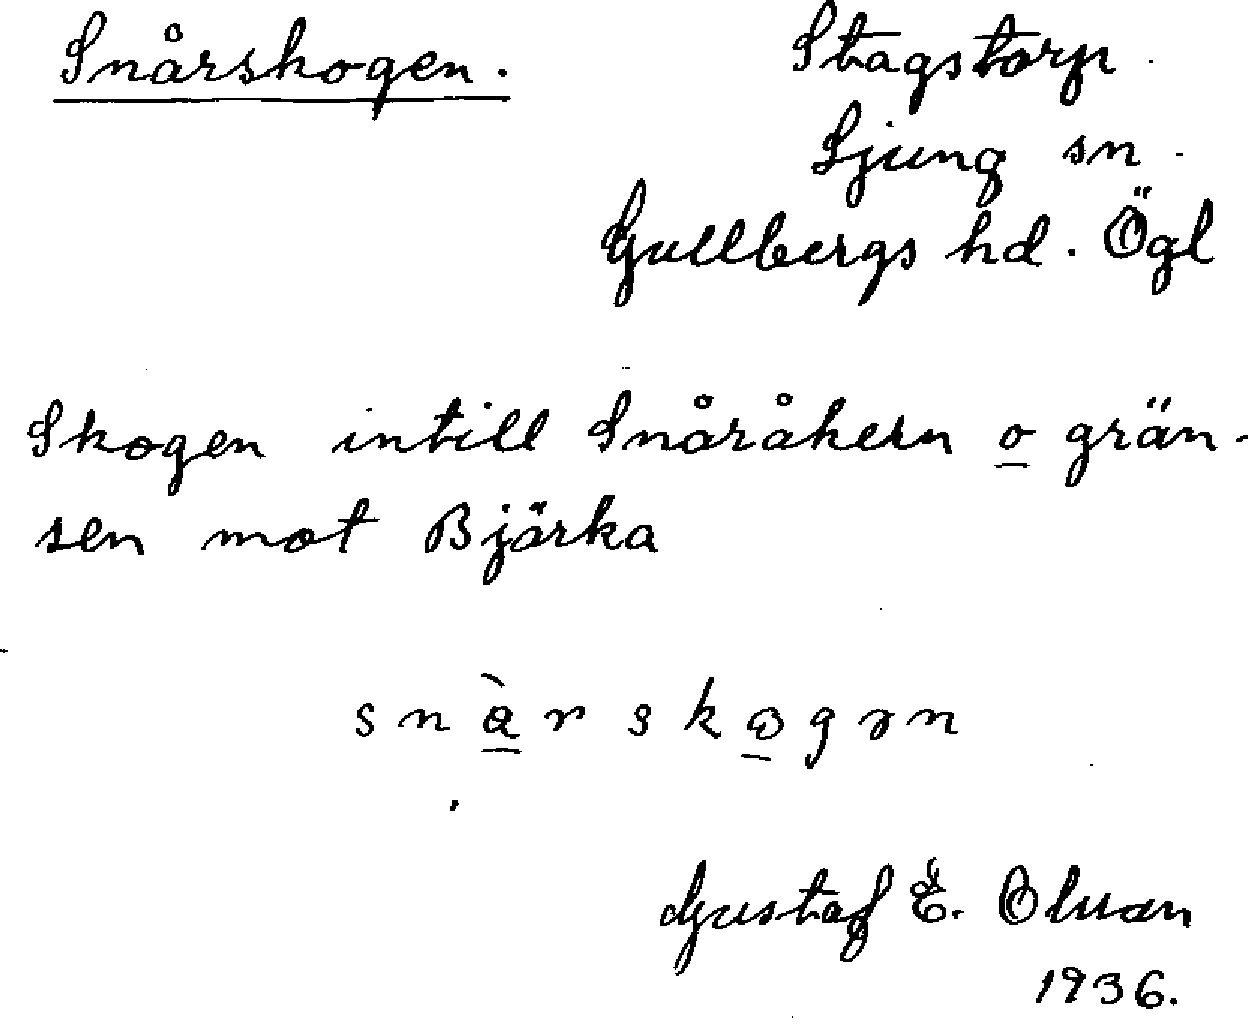 Snårskogen.
Stagstorp.
Ljung sn.
Gullbergs hd. Ögl
Skogen intill Snåråkern o grän-
sen mot Bjärka
Gustaf E. Olsson
1936.